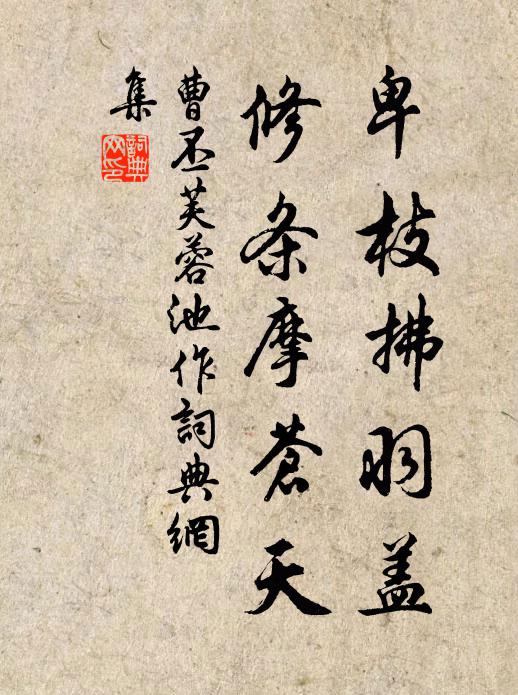 卑枝拂羽盖
修条摩蒼天
曹丕芙蓉池作詞典網
集
詞典网印